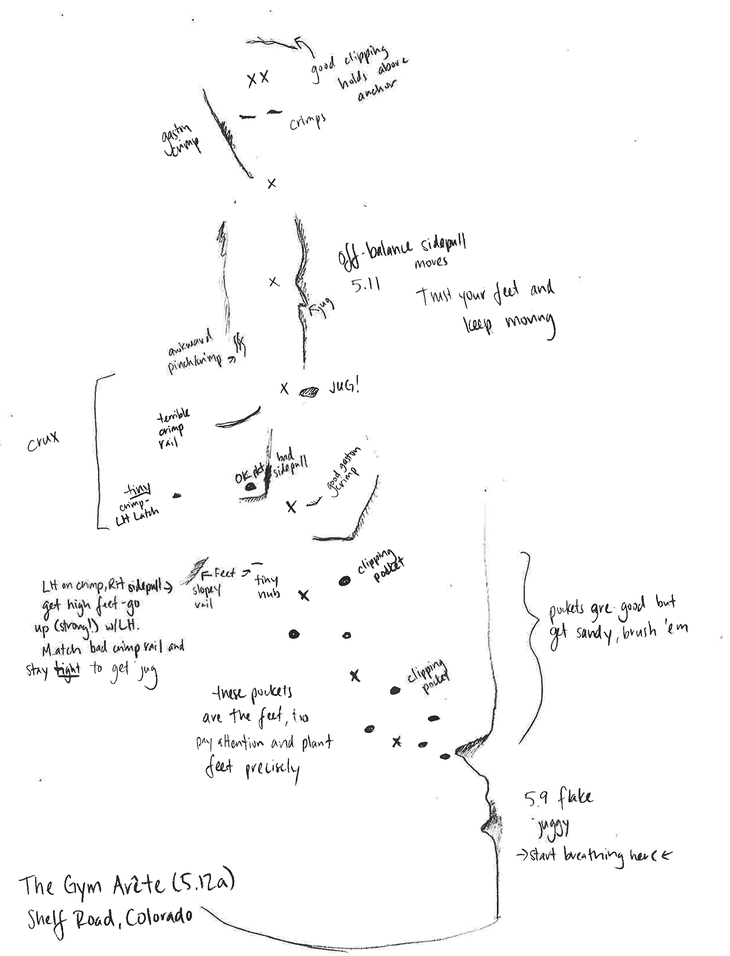 good clipping
holds above
anchor
XX
gaston
crimp
crimps
x
off-balance sidepull
moves
5.11
x
jug
Trust your feet and
keep moving
awkward
pinch/crimp →
x
JUG!
crux
terrible
crimp
rail
OK pkt
bad
sidepull
good gaston
crimp
tiny
crimp-
LH Latch
x
← Feet →
slopey
rail
tiny
nub
clipping
pocket
x
LH on crimp, RH sidepull →
get high feet-go
up (strong!) w/LH.
Match bad crimp rail and
stay tight to get jug
pockets are good but
get sandy, brush 'em
x
clipping
pocket
these pockets
are the feet, too
pay attention and plant
feet precisely
x
5.9 flake
juggy
→start breathing here←
The Gym Arête (5.12a)
Shelf Road, Colorado